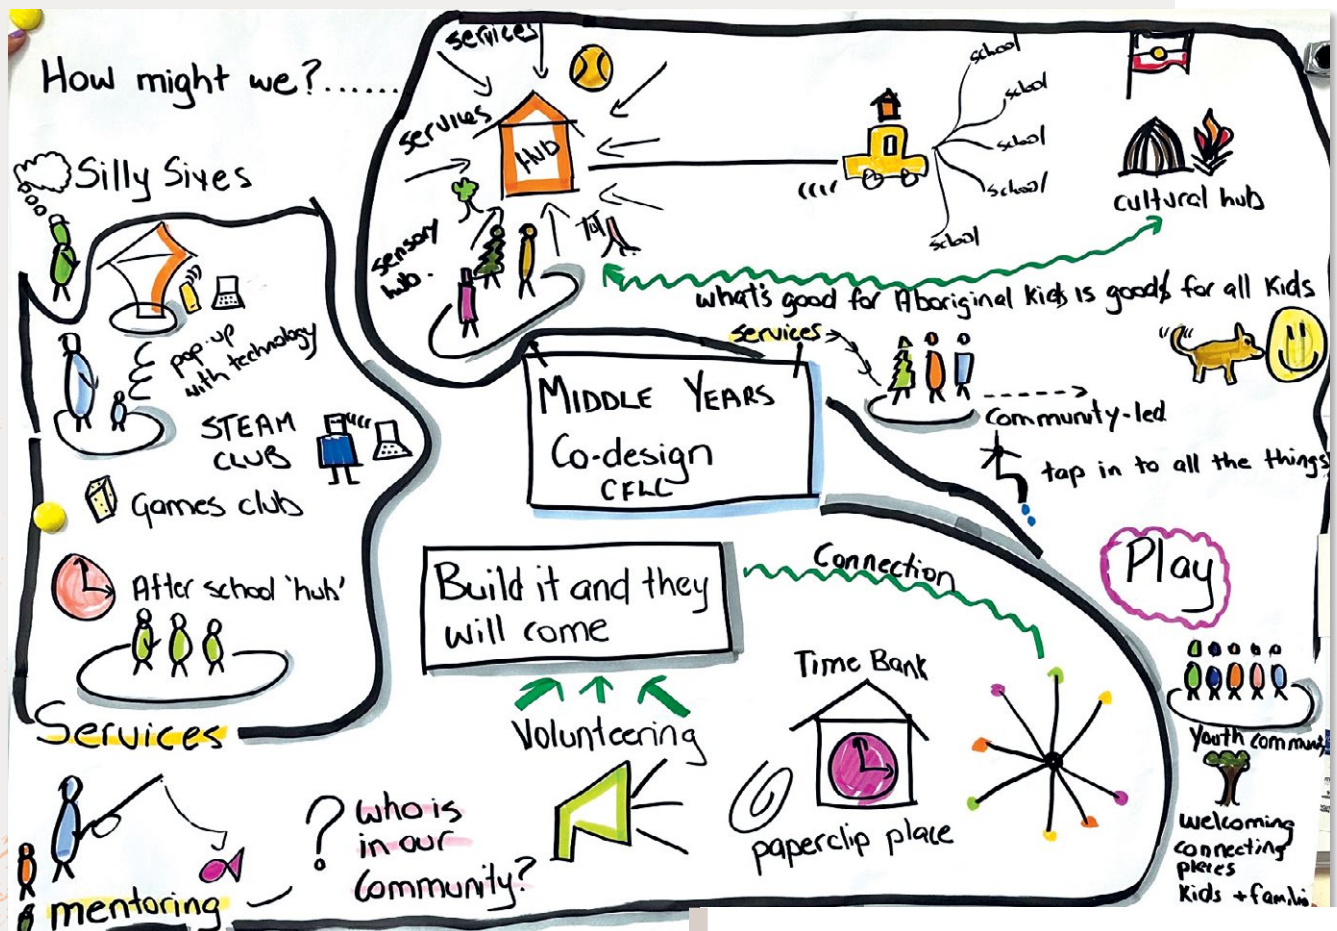 How might we?.......
Silly Sixes
pop-up
with technology
STEAM
CLUB
Games club
After school 'hub'
Services
mentoring
services
services
HUB
sensory
hub.
school
school
school
school
school
cultural hub
what's good for Aboriginal Kids is good for all Kids
services
community-led
tap in to all the things
MIDDLE YEARS
Co-design
CFLC
Build it and they
will come
Connection
Volunteering
Time Bank
paperclip place
? who is
in our
Community?
Play
Youth
welcoming
connecting
places
Kids +